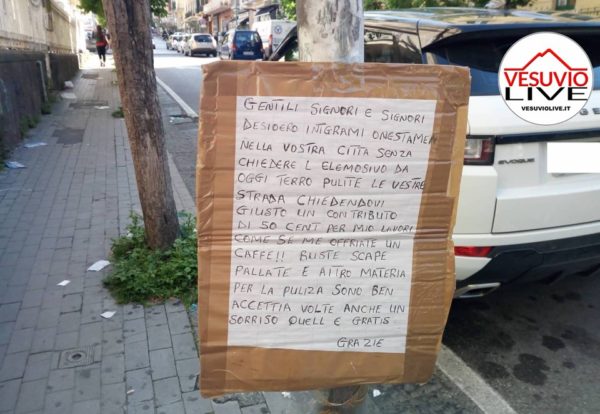 VESUVIO
LIVE
VESUVIOLIVE.IT
GENTILI SIGNORI E SIGNORI
DESIDERO INTIGRAMI ONESTAMEN
NELLA VOSTRA CITTA SENZA
CHIEDERE L ELEMOSIVO DA
OGGI TERRO PULITE LE VESTRE
STRADA CHIEDENDOVI
GIUSTO UN CONTRIBUTO
DI 50 CENT PER MIO LAVORI
COME SE ME OFFRIATE UN
CAFFE!! BUSTE SCAPE
PALLATE E AITRO MATERIA
PER LA PULIZA SONO BEN
ACCETTIA VOLTE ANCHE UN
SORRISO QUELL E GRATIS
GRAZIE
EVOQUE